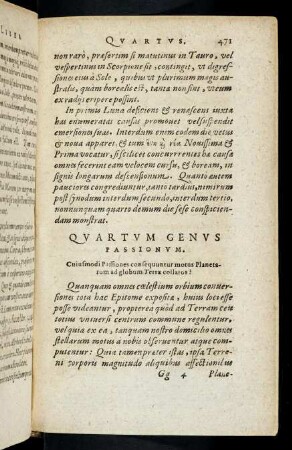 LIBER
QVARTVS. 471
non raro, præsertim si matutinus in Tauro, vel
vespertinus in Scorpione sit, contingit, vt digres-
siones eius à Sole, quibus vt plurimum magis au-
stralis, quàm borealis est, tanta non sint, vt eum
ex radijs eripere possint.
In primis Luna deficiens & renascens iuxta
has enumeratas causas promouet vel suspendit
emersiones suas. Interdum enim eodem die vetus &
noua apparet, & tum Novissima &
Prima vocatur, si scilicet concurrentes hæ causæ
omnes fecerint eam velocem cursu, & boream, in
signis longarum descensionum. Quanto autem
pauciores congrediuntur, tanto tardius, nimirum
post synodum interdum secundo, interdum tertio,
nonnunquam quarto demum die sese conspicien-
dam monstrat.
QVARTVM GENVS
PASSIONVM.
Cuiusmodi Passiones consequuntur motus Planeta-
rum ad globum Terræ collatos?
Quanquam omnes cælestium orbium conuer-
siones tota hac Epitome exposita, huius loci esse
posse videantur, propterea quòd ad Terram ceu
totius vniuersi centrum commune regulentur,
vel quia ex ea, tanquam nostro domicilio omnes
stellarum motus à nobis obseruentur atque com-
putentur: Quia tamen præter istas, ipsa Terre-
ni corporis magnitudo aliquibus affectionibus
Gg 4 Plane-